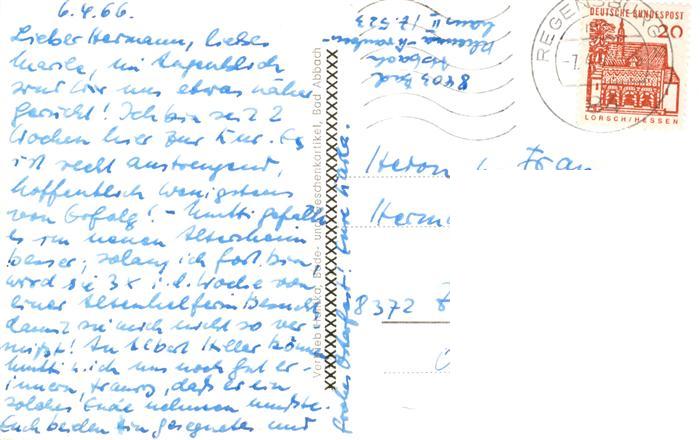 6.4.66.
Lieber Hermann, liebes
Marile, im Augenblick
sind wir uns etwas näher
gerückt! Ich bin seit 2
Wochen hier zur Kur. Es
ist recht anstrengend,
hoffentlich wenigstens
von Erfolg! - Mutti gefällt
es im neuen Altersheim
besser; solang ich fort bin
wird sie 3x i. d. Woche von
einer Altenhelferin besucht
damit sie mich nicht so ver
mißt! An Albert Hiller können
Mutti u. ich uns noch gut er-
innern, traurig, daß er ein
solches Ende nehmen mußte.
Euch beiden ein gesegnetes und
frohes Osterfest! Eure
Vertrieb Bade- und Geschenkartikel, Bad Abbach
8403 Bad
Abbach
Rheuma-Kranken-
haus II Z. 523
REGENSBURG
DEUTSCHE BUNDESPOST
20
LORSCH/HESSEN
Herrn u. Frau
Herm
8372 Z